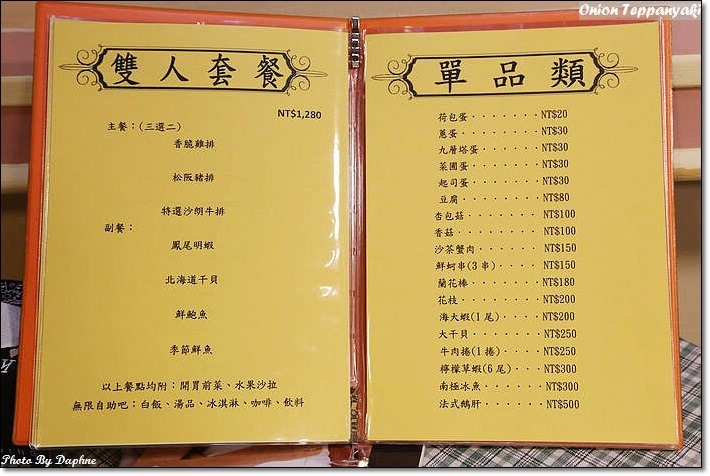 Onion Teppanyaki
雙人套餐
NT$1,280
主餐：(三選二)
香脆雞排
松阪豬排
特選沙朗牛排
副餐：
鳳尾明蝦
北海道干貝
鮮鮑魚
季節鮮魚
以上餐點均附：開胃前菜、水果沙拉
無限自助吧：白飯、湯品、冰淇淋、咖啡、飲料
單品類
荷包蛋‧‧‧‧‧‧‧NT$20
蔥蛋‧‧‧‧‧‧‧‧NT$30
九層塔蛋‧‧‧‧‧‧NT$30
菜圃蛋‧‧‧‧‧‧‧NT$30
起司蛋‧‧‧‧‧‧‧NT$30
豆腐‧‧‧‧‧‧‧‧NT$80
杏包菇‧‧‧‧‧‧‧NT$100
香菇‧‧‧‧‧‧‧‧NT$100
沙茶蟹肉‧‧‧‧‧‧NT$150
鮮蚵串(3串)‧‧‧‧NT$150
蘭花棒‧‧‧‧‧‧‧NT$180
花枝‧‧‧‧‧‧‧‧NT$200
海大蝦(1尾)‧‧‧‧NT$200
大干貝‧‧‧‧‧‧‧NT$250
牛肉捲(1捲)‧‧‧‧NT$250
檸檬草蝦(6尾)‧‧‧NT$300
南極冰魚‧‧‧‧‧‧NT$300
法式鵝肝‧‧‧‧‧‧NT$500
Photo By Daphne